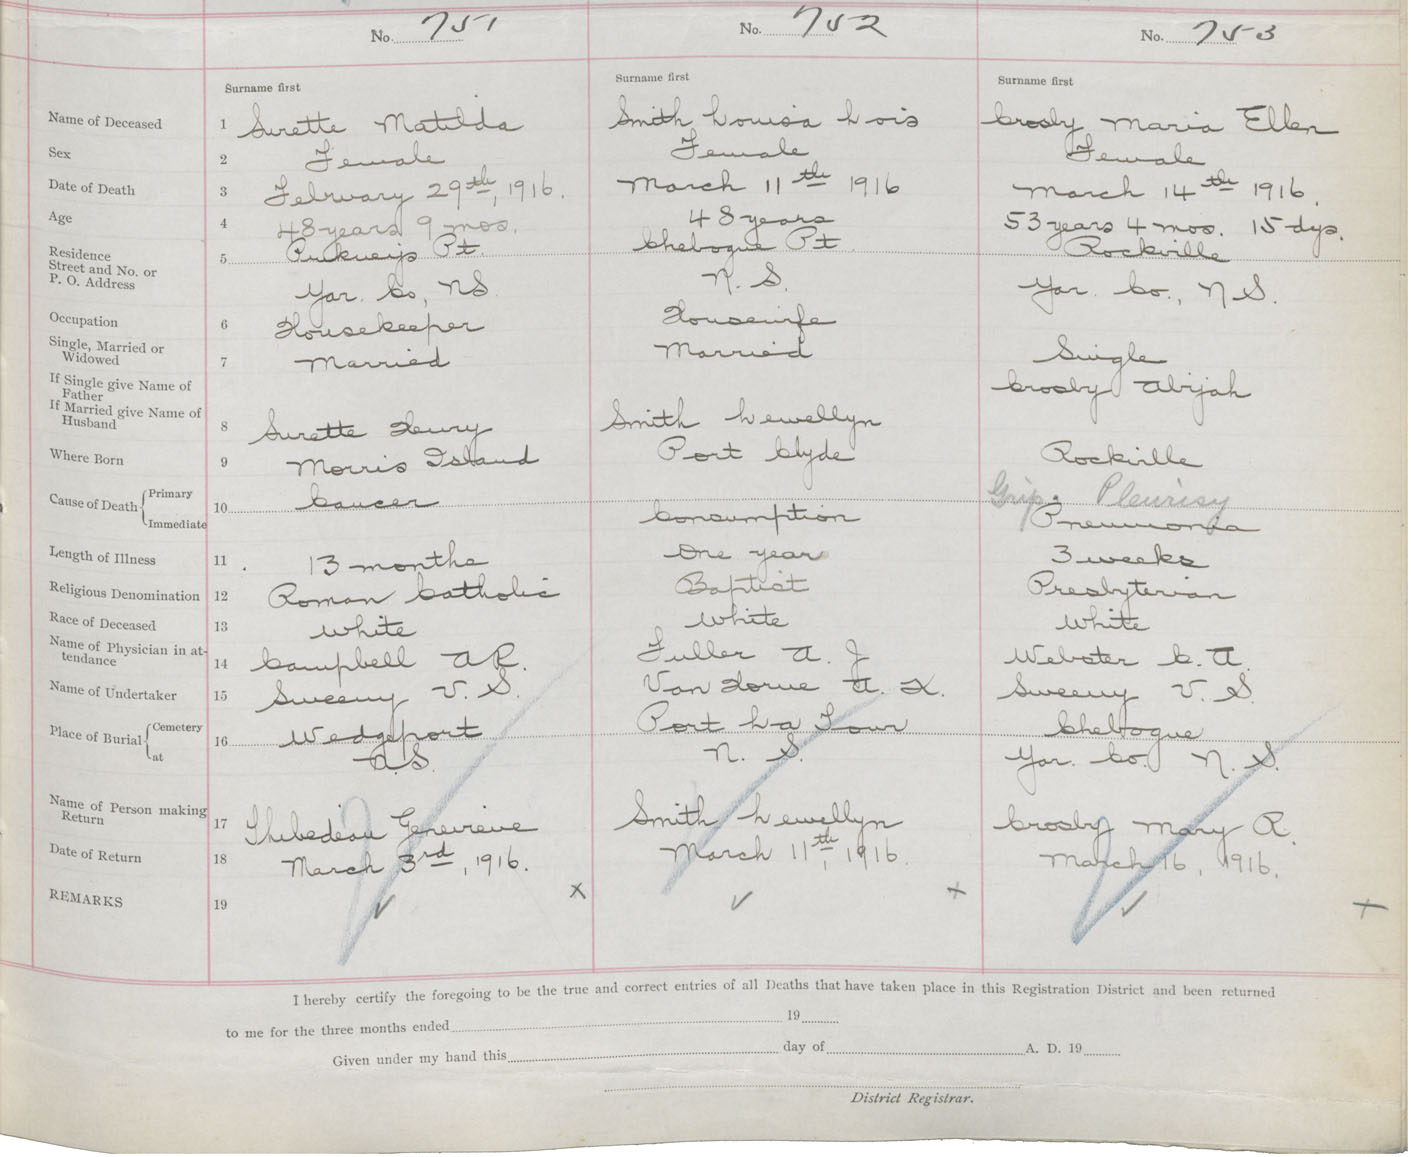 No. 751 No. 752 No. 753
Surname first Surname first Surname first
Name of Deceased 1 Surette Matilda Smith Louisa Lois Crosby Maria Ellen
Sex 2 Female Female Female
Date of Death 3 February 29th, 1916. March 11th 1916 March 14th 1916.
Age 4 48 years 9 mos. 48 years 53 years 4 mos. 15 dys.
Residence Street and No. or P. O. Address 5 Pt. Chebogue Pt. Rockville
Yar. Co, NS N. S. Yar. Co., N S.
Occupation 6 Housekeeper Housewife
Single, Married or Widowed 7 Married Married Single
If Single give Name of Father Crosby Abijah
If Married give Name of Husband 8 Surette Henry Smith Lewellyn
Where Born 9 Morris Island Port Clyde Rockville
Cause of Death { Primary 10 Cancer Grip. Pleurisy
Immediate Consumption Pneumonia
Length of Illness 11 13 months One year 3 weeks
Religious Denomination 12 Roman Catholic Baptist Presbyterian
Race of Deceased 13 White White White
Name of Physician in attendance 14 Campbell A R. Fuller A. J Webster C. A.
Name of Undertaker 15 Sweeny V. S. Van Horne A. K. Sweeny V. S.
Place of Burial { Cemetery 16 Wedgeport Port La Tour Chebogue
at N.S. N. S. Yar. Co. N. S.
Name of Person making Return 17 Thibedeau Genevieve Smith Lewellyn Crosby Mary R.
Date of Return 18 March 3rd, 1916. March 11th, 1916. March 16, 1916.
REMARKS 19
I hereby certify the foregoing to be the true and correct entries of all Deaths that have taken place in this Registration District and been returned
to me for the three months ended 19
Given under my hand this day of A. D. 19
District Registrar.